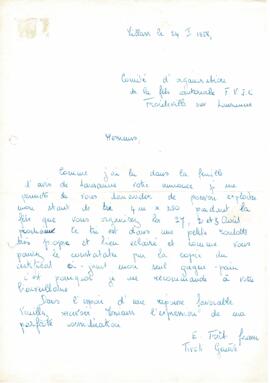 Villars le 24 I 1958,
Comité d'organisation
de la fête cantonale F.V.J.C
Froideville sur Lausanne
Messieurs,
Comme j'ai lu dans la feuille
d'avis de Lausanne votre annonce je me
permets de vous demander de pouvoir exploiter
mon stand de tir 4 m x 2.50 pendant la
fête que vous organisez les 27, 2 et 3 Août
prochain le tir est dans une petite roulotte
très propre et bien éclairé et comme vous
pouvez le constater par la copie du
certificat ci-joint mon seul gagne-pain
c'est pourquoi je me recommande à votre
bienveillance
Dans l'espoir d'une réponse favorable
Veuillez, recevoir Messieurs l'expression de ma
parfaite considération
E.
Tivoli Genève